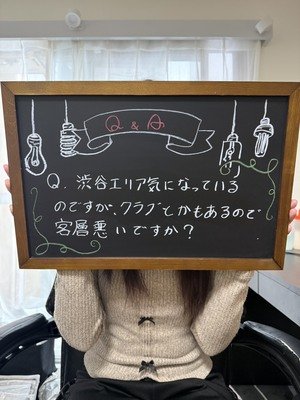 Q & A
Q. 渋谷エリア気になっている
のですが、クラブとかもあるので
客層悪いですか？